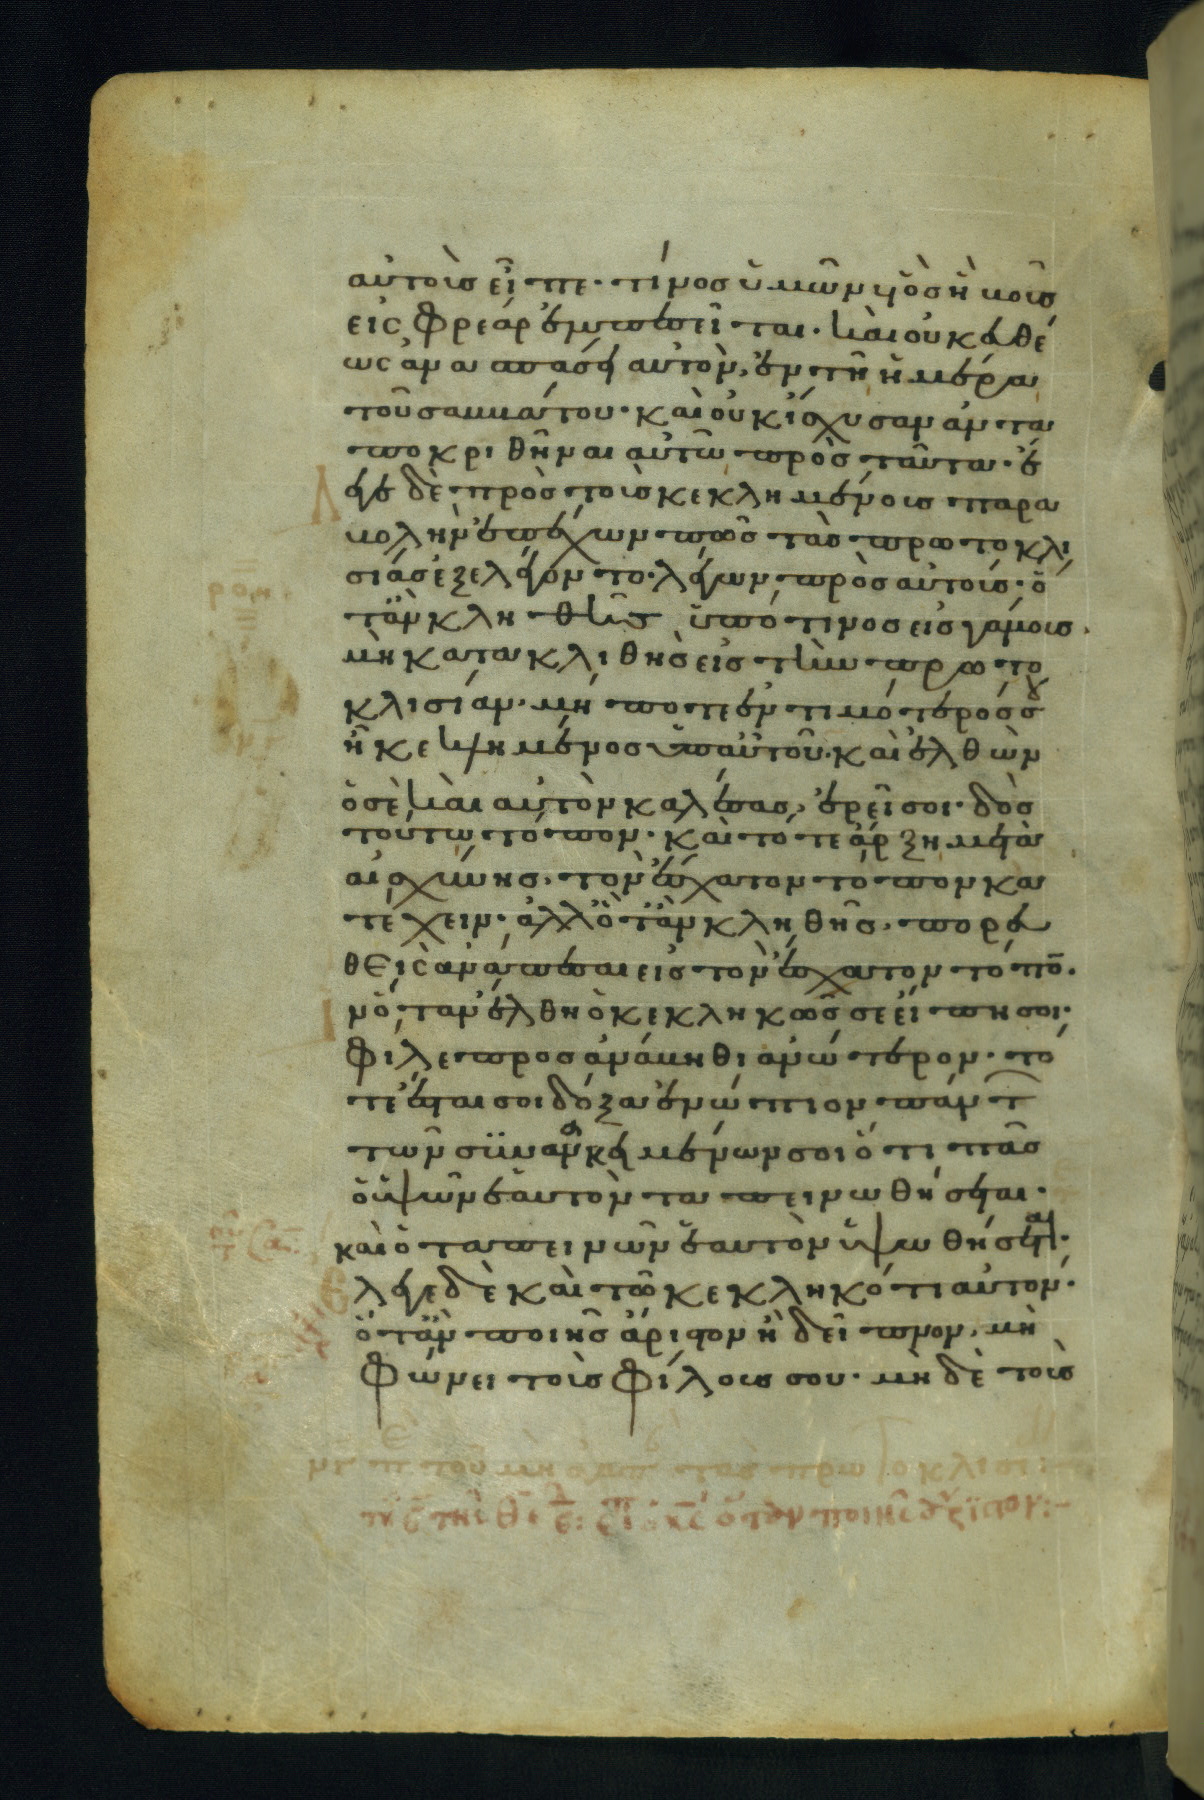 αὐτοὺς εἶπε· τίνος ὑμῶν υἱὸς ἢ βοῦς
εἰς φρέαρ ἐμπεσεῖται· καὶ οὐκ εὐθέ
ως ἀνασπάσει αὐτὸν, ἐν τῆ ἡμέρα
τοῦ σαββάτου· καὶ οὐκ ἴσχυσαν ἀντα
ποκριθῆναι αὐτῶ πρὸς ταῦτα· ἔ
λεγε δὲ πρὸς τοὺς κεκλημένους παρα
βολὴν ἐπέχων πῶς τὰς πρωτοκλι
σίας ἐξελέγοντο· λέγων πρὸς αὐτούς· ὅ
τὰν κληθῆς ὑπό τινος εἰς γάμους·
μὴ κατακλιθῆς εἰς τὴν πρωτο
κλισίαν· μή ποτε ἐντιμότερός σου
ἦ κεκλημένος ὑπ αὐτοῦ· καὶ ἐλθὼν
ὁ σὲ καὶ αὐτὸν καλέσας, ἐρεῖ σοι· δὸς
τούτω τόπον· καὶ τότε ἄρξη μετὰ
αἰσχύνης, τὸν ἔσχατον τόπον κα
τέχειν· ἀλλ ὅταν κληθῆς, πορευ
θεὶς ἀνάπεσαι εἰς τὸν ἔσχατον τόπον·
ἵνὅταν ἔλθη ὁ κεκληκώς σε εἴπη σοι·
φίλε προσανάβηθι ἀνώτερον· τό
τε ἔσται σοι δόξα ἐνώπιον πάντ
τῶν συνανακειμένων σοι ὅτι πᾶς
ὁ ὑψῶν ἑαυτὸν ταπεινωθήσεται·
καὶ ὁ ταπεινῶν ἑαυτὸν ὑψωθήσεται·
λέγε δὲ καὶ τῶ κεκληκότι αὐτόν·
ὅτὰν ποιῆς ἄριστον ἢ δεῖπνον, μὴ
φώνει τοὺς φίλους σου· μὴ δὲ τοὺς